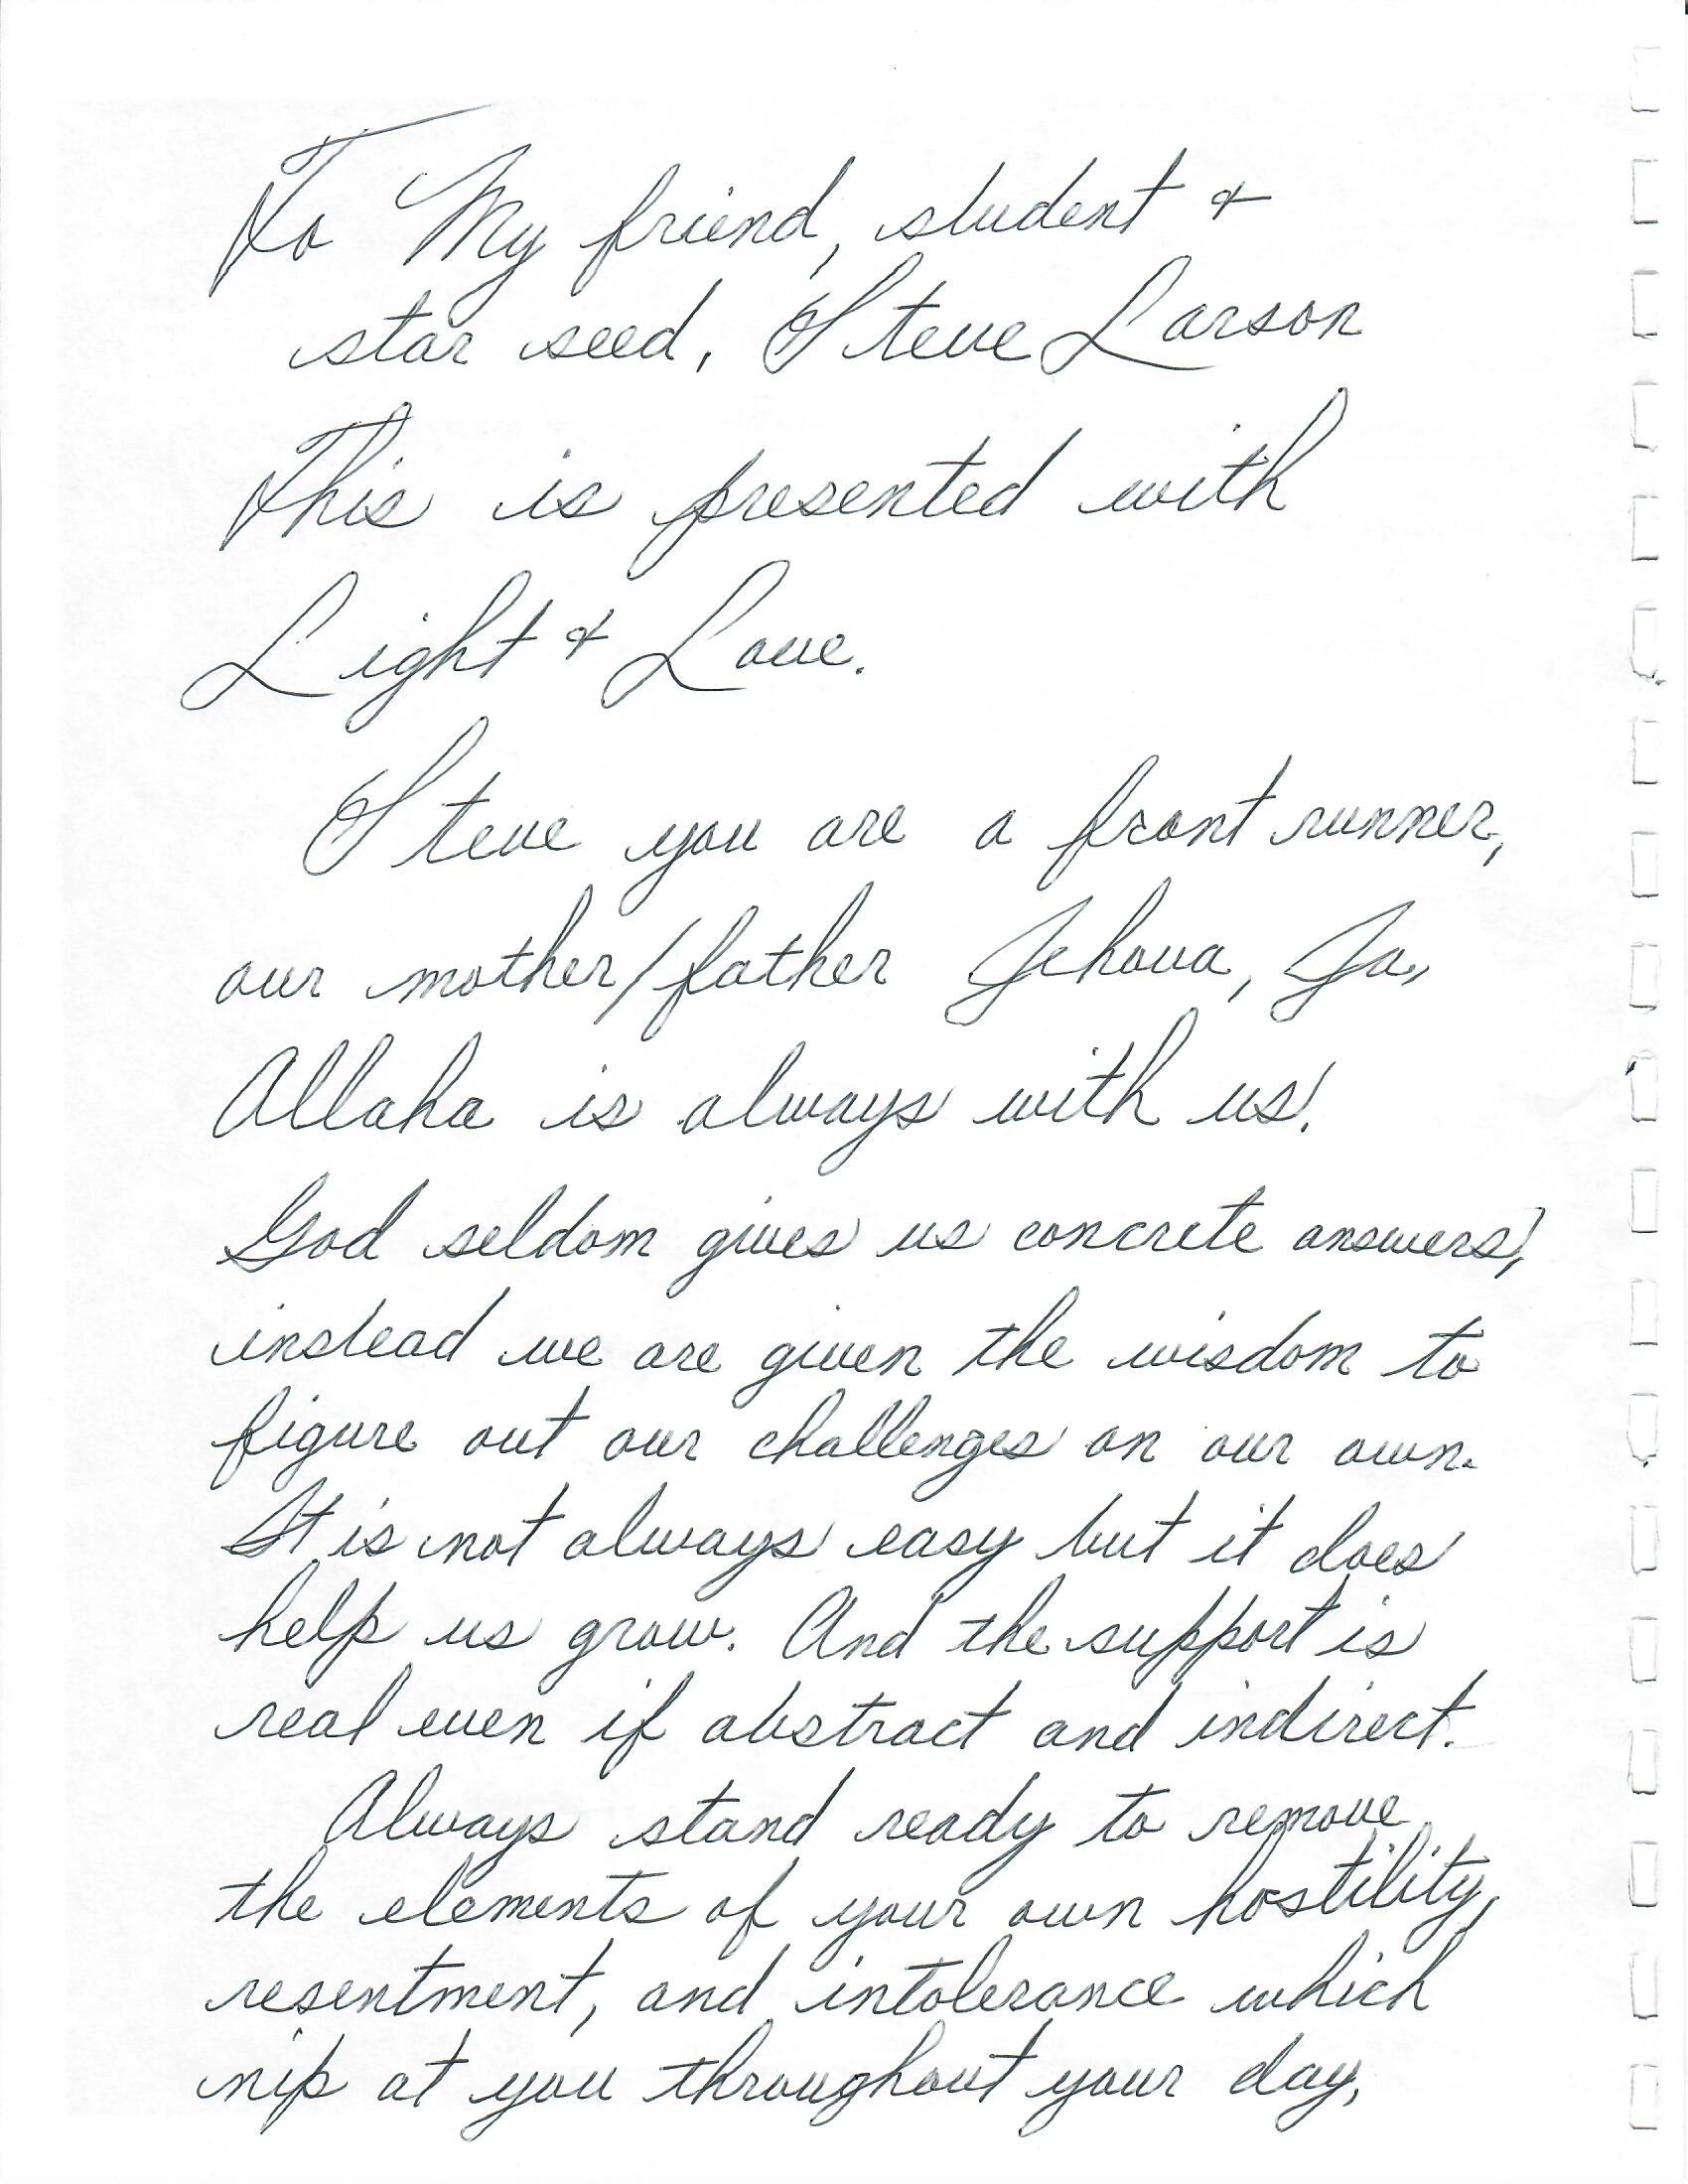 To My friend, student &
star seed, Steve Larson
This is presented with
Light & Love.
Steve you are a front runner,
our mother/father Jehova, Ja,
Allaha is always with us!
God seldom gives us concrete answers,
instead we are given the wisdom to
figure out our challenges on our own.
It is not always easy but it does
help us grow. And the support is
real even if abstract and indirect.
Always stand ready to remove
the elements of your own hostility,
resentment, and intolerance which
nip at you throughout your day,